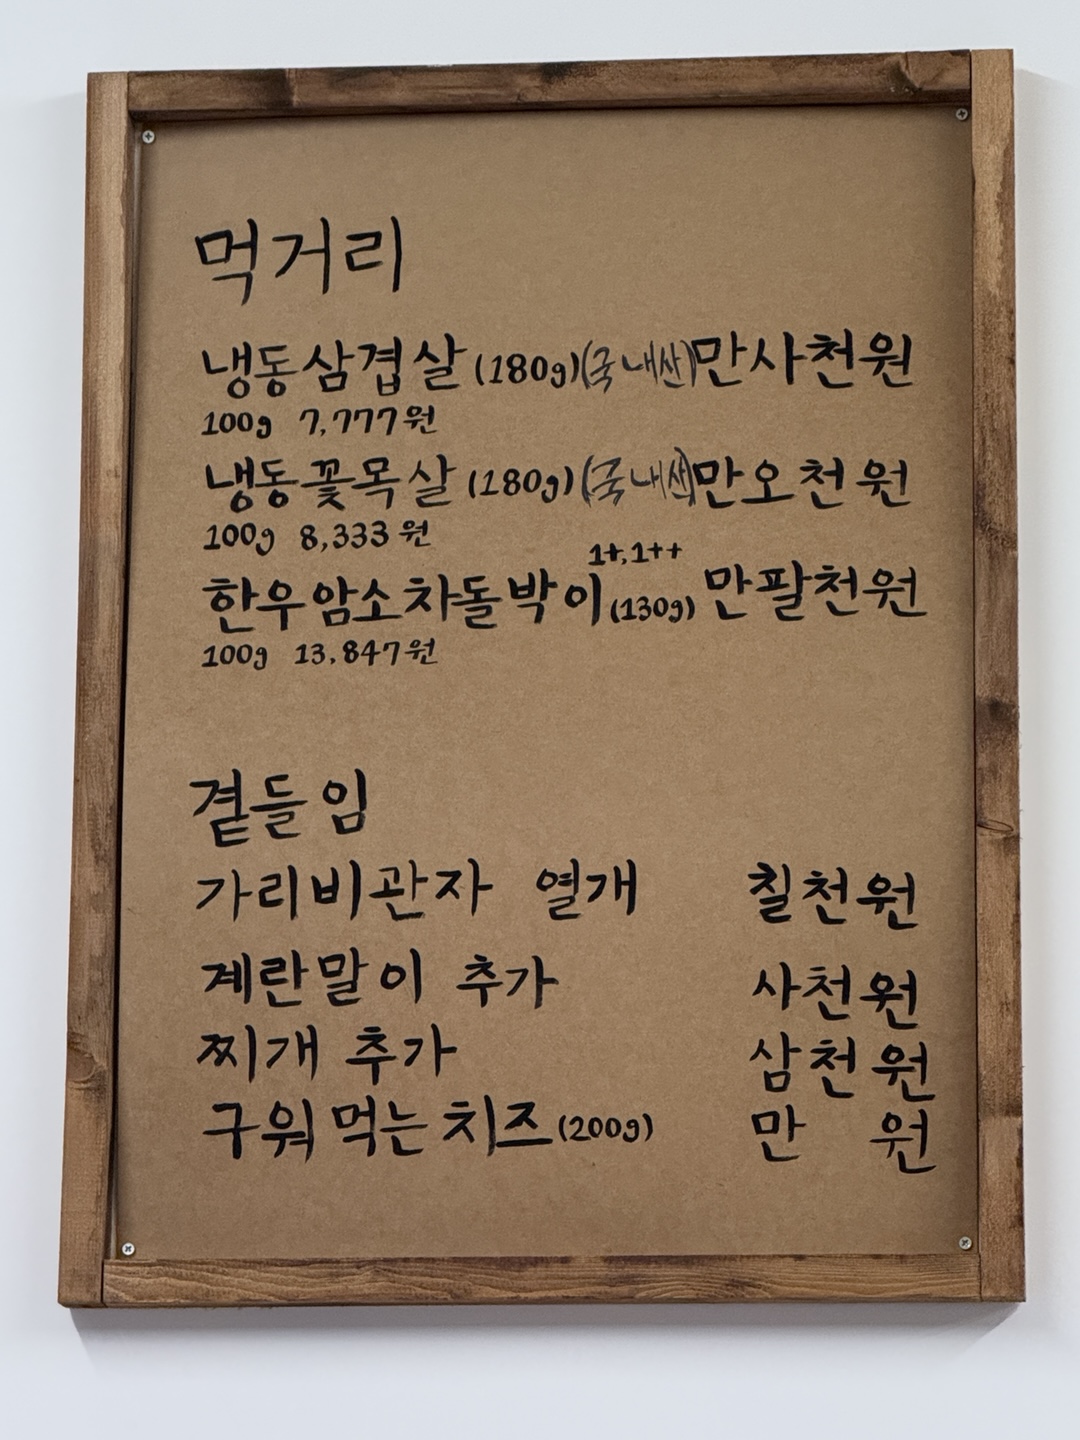 먹거리
냉동삼겹살 (180g)(국내산) 만사천원
100g 7,777원
냉동꽃목살 (180g)(국내산) 만오천원
100g 8,333원
1+,1++
한우암소차돌박이 (130g) 만팔천원
100g 13,847원
곁들임
가리비관자 열개 칠천원
계란말이 추가 사천원
찌개 추가 삼천원
구워먹는치즈 (200g) 만원